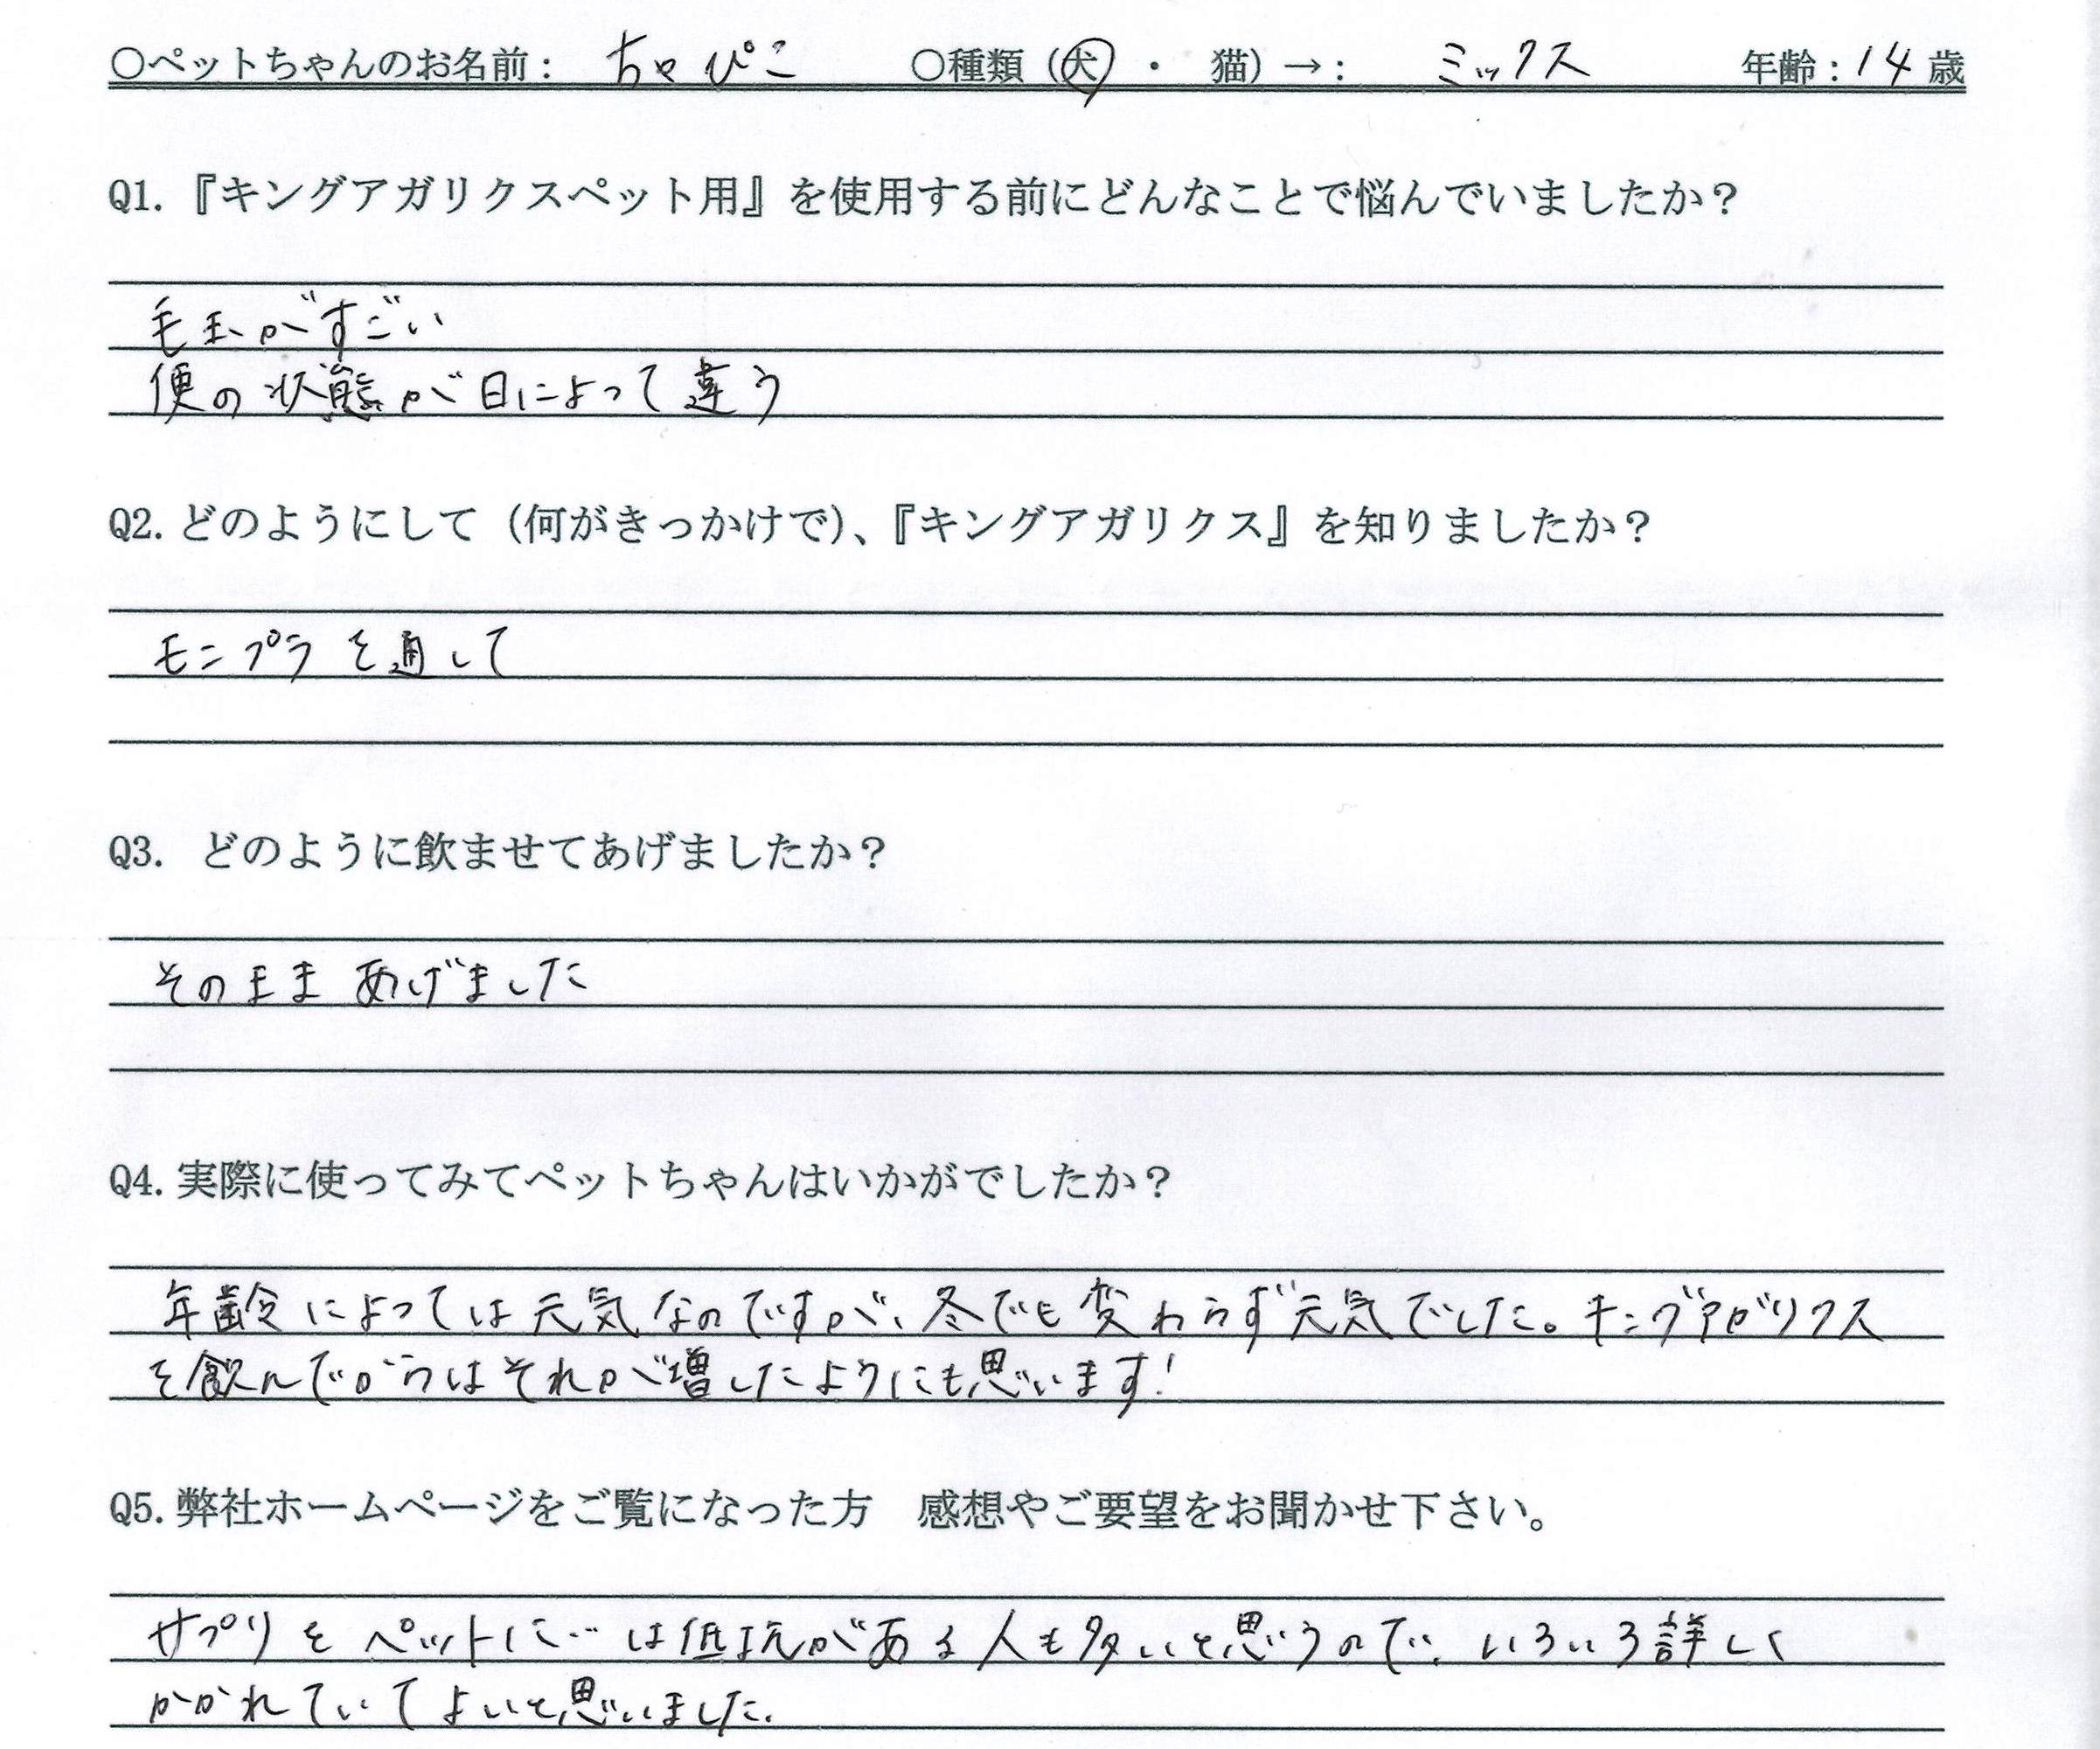 ○ペットちゃんのお名前： ちゃぴこ ○種類（犬・ 猫）→： ミックス 年齢：14歳
Q1.『キングアガリクスペット用』を使用する前にどんなことで悩んでいましたか？
毛玉がすごい
便の状態が日によって違う
Q2.どのようにして（何がきっかけで）、『キングアガリクス』を知りましたか？
モニプラを通して
Q3. どのように飲ませてあげましたか？
そのままあげました
Q4.実際に使ってみてペットちゃんはいかがでしたか？
年齢によっては元気なのですが、冬でも変わらず元気でした。キングアガリクス
を飲んでからはそれが増したようにも思います！
Q5.弊社ホームページをご覧になった方　感想やご要望をお聞かせ下さい。
サプリをペットに…は低抗がある人も多いと思うので、いろいろ詳しく
かかれていてよいと思いました。